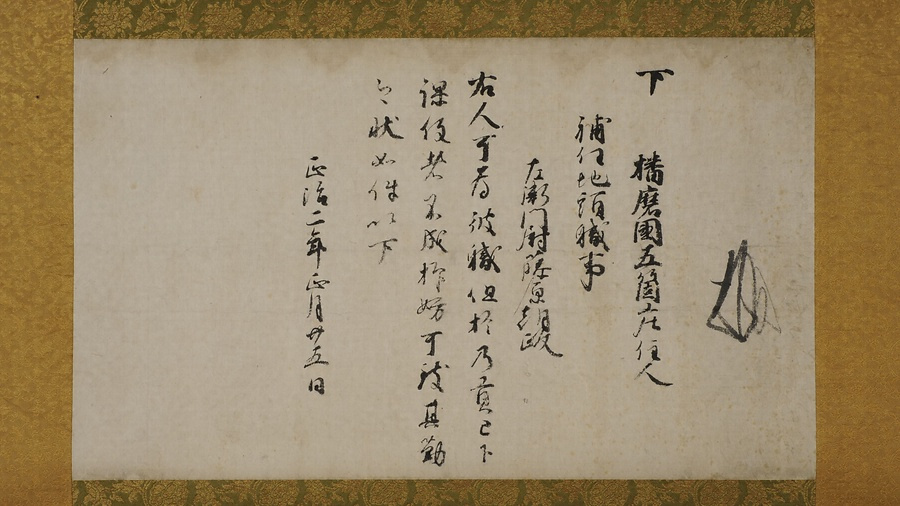 下　播磨國五箇庄住人
補任地頭職事
左衛門尉藤原朝政
右人可為彼職但於乃貢已下
課役者不成押妨可致其勤
之状如件以下
正治二年正月廿五日